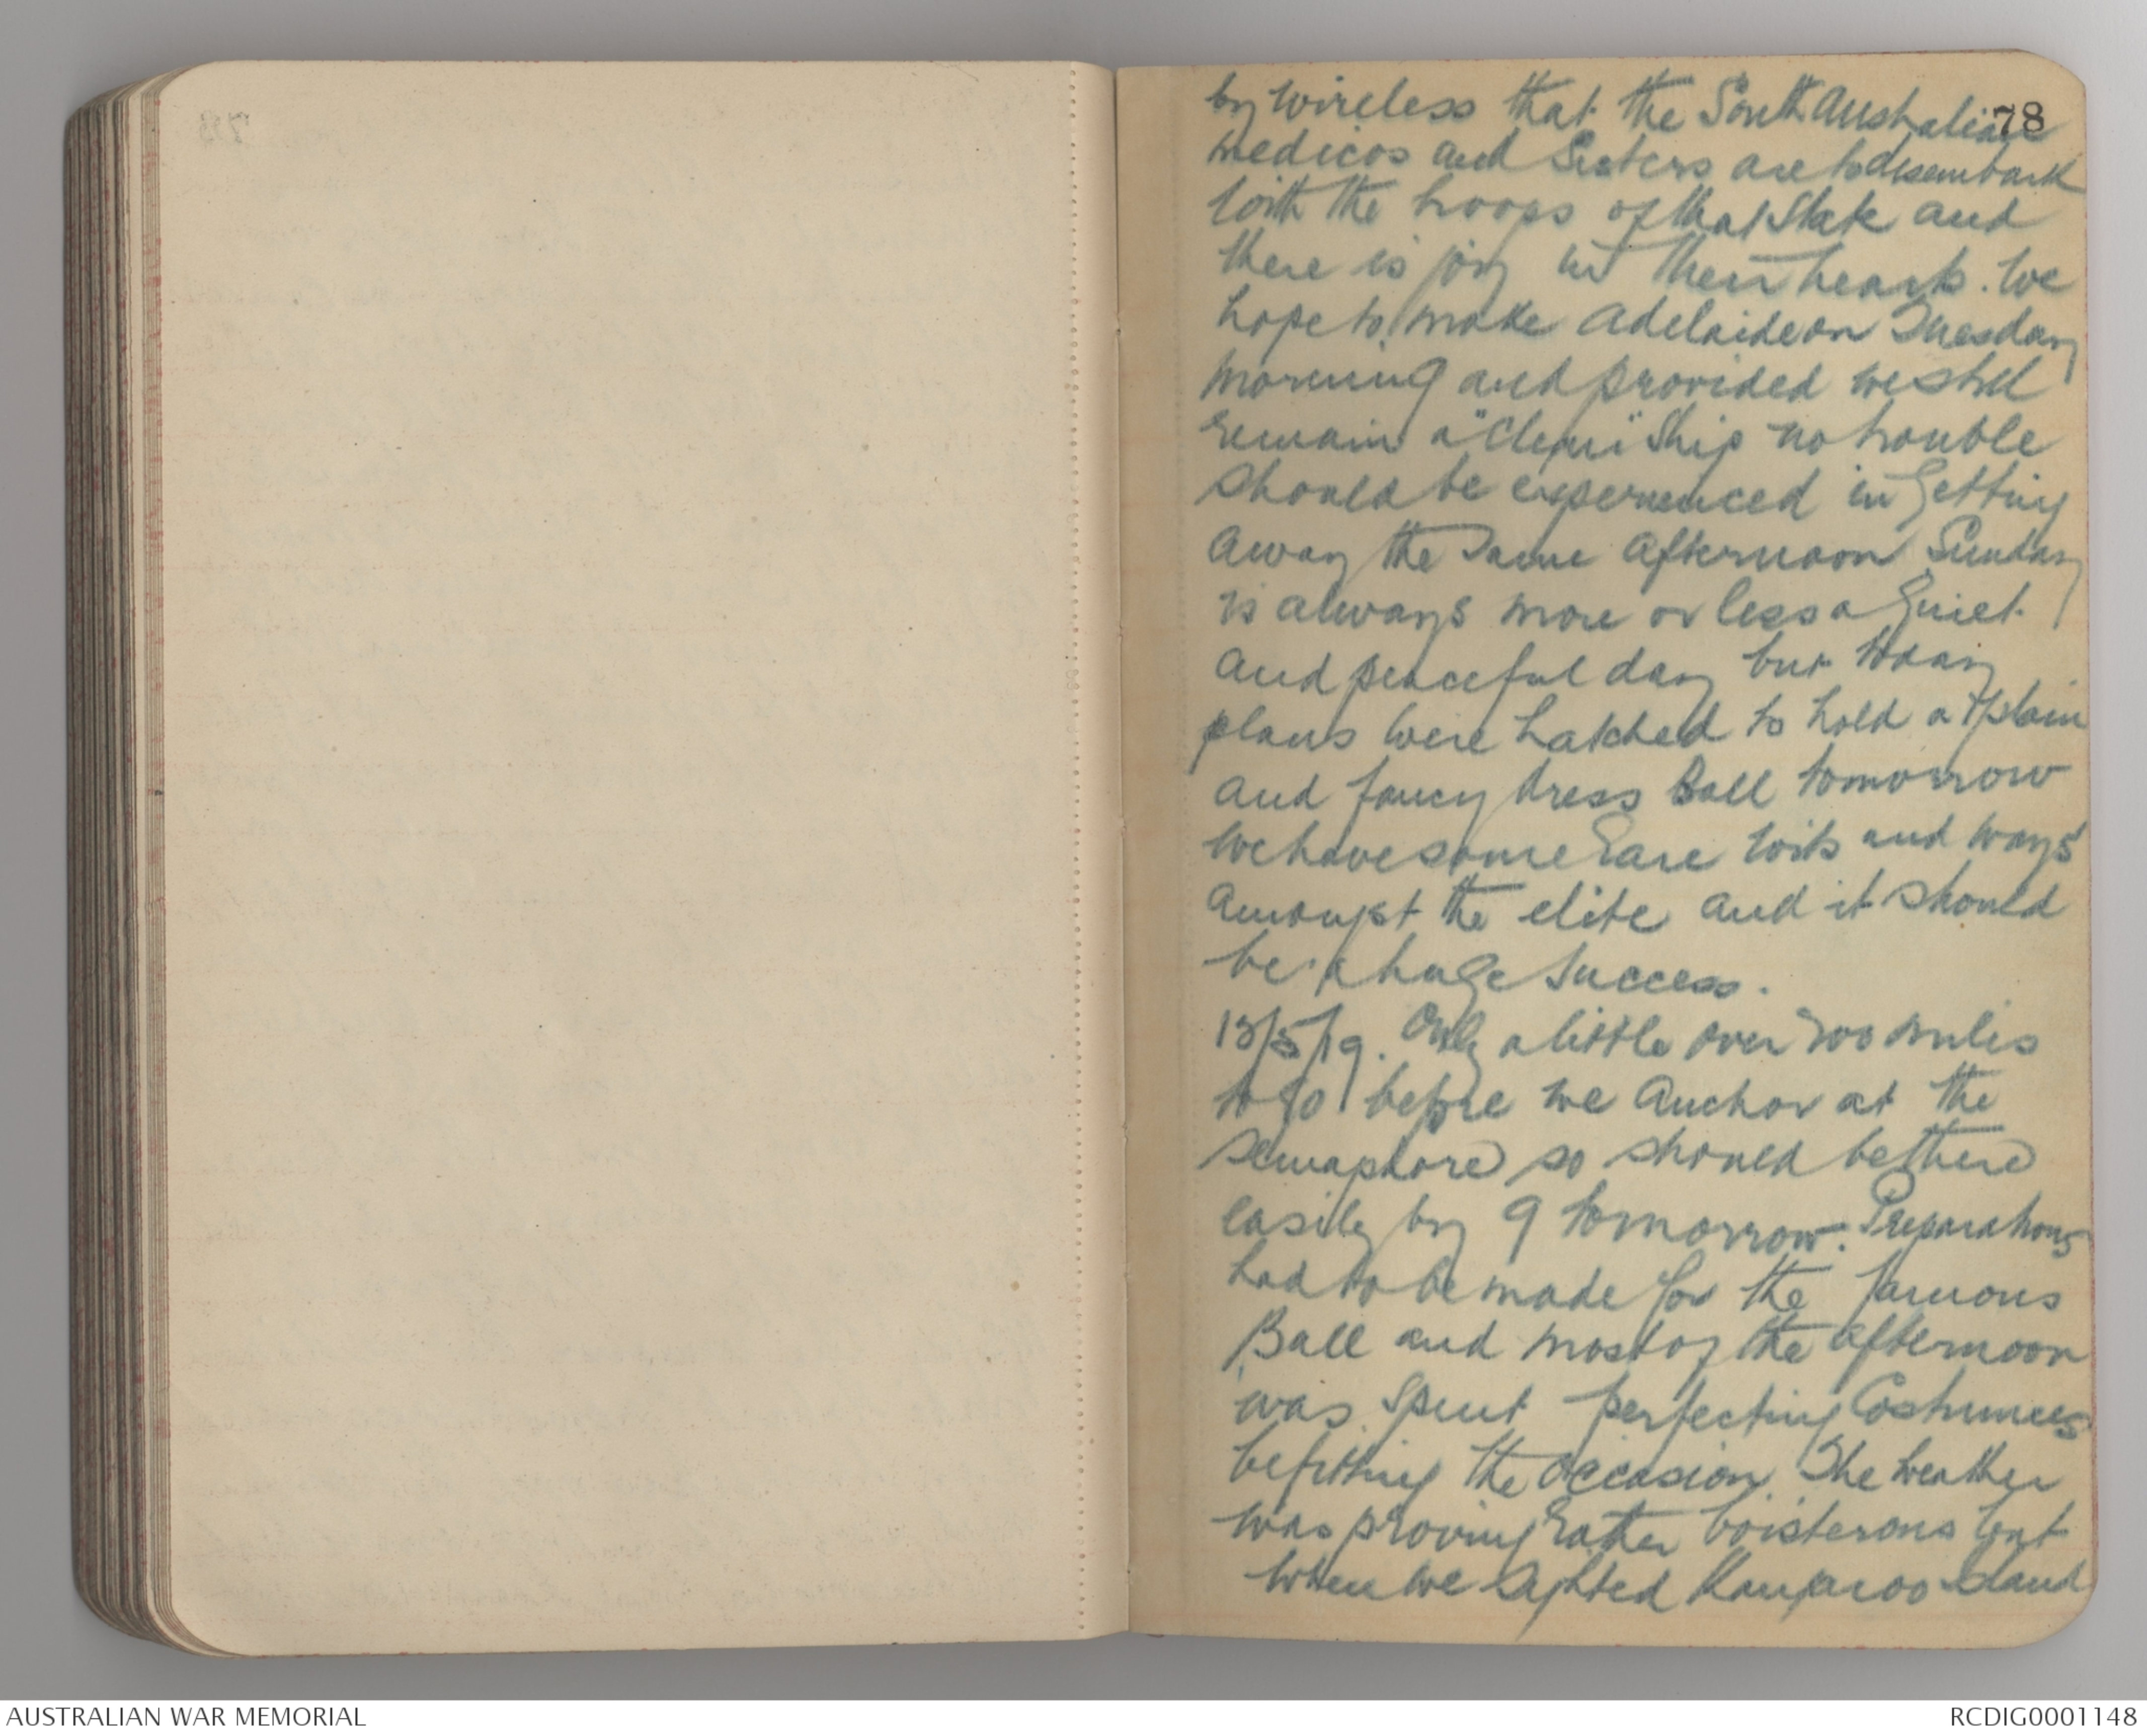 78
by wireless that the South Australian
medicos and Sisters are to disembark
with the troops of that State and
there is joy in their hearts. We
hope to make Adelaide on Tuesday
morning and provided we still
remain a "clean" Ship no trouble
should be experienced in getting
away the same afternoon. Sunday
is always more or less a quiet
and peaceful day but today
plans were hatched to hold a plain
and fancy dress Ball tomorrow
We have some rare wits and wags
amongst the elite and it should
be a huge success.
13/5/19. Only a little over 200 miles
to go before we anchor at the
Semaphore so should be there
easily by 9 tomorrow. Preparations
had to be made for the famous
Ball and most of the afternoon
was spent perfecting Costumes
befitting the occasion. The weather
was proving rather boisterous but
when we sighted Kangaroo Island
AUSTRALIAN WAR MEMORIAL
RCDIG0001148